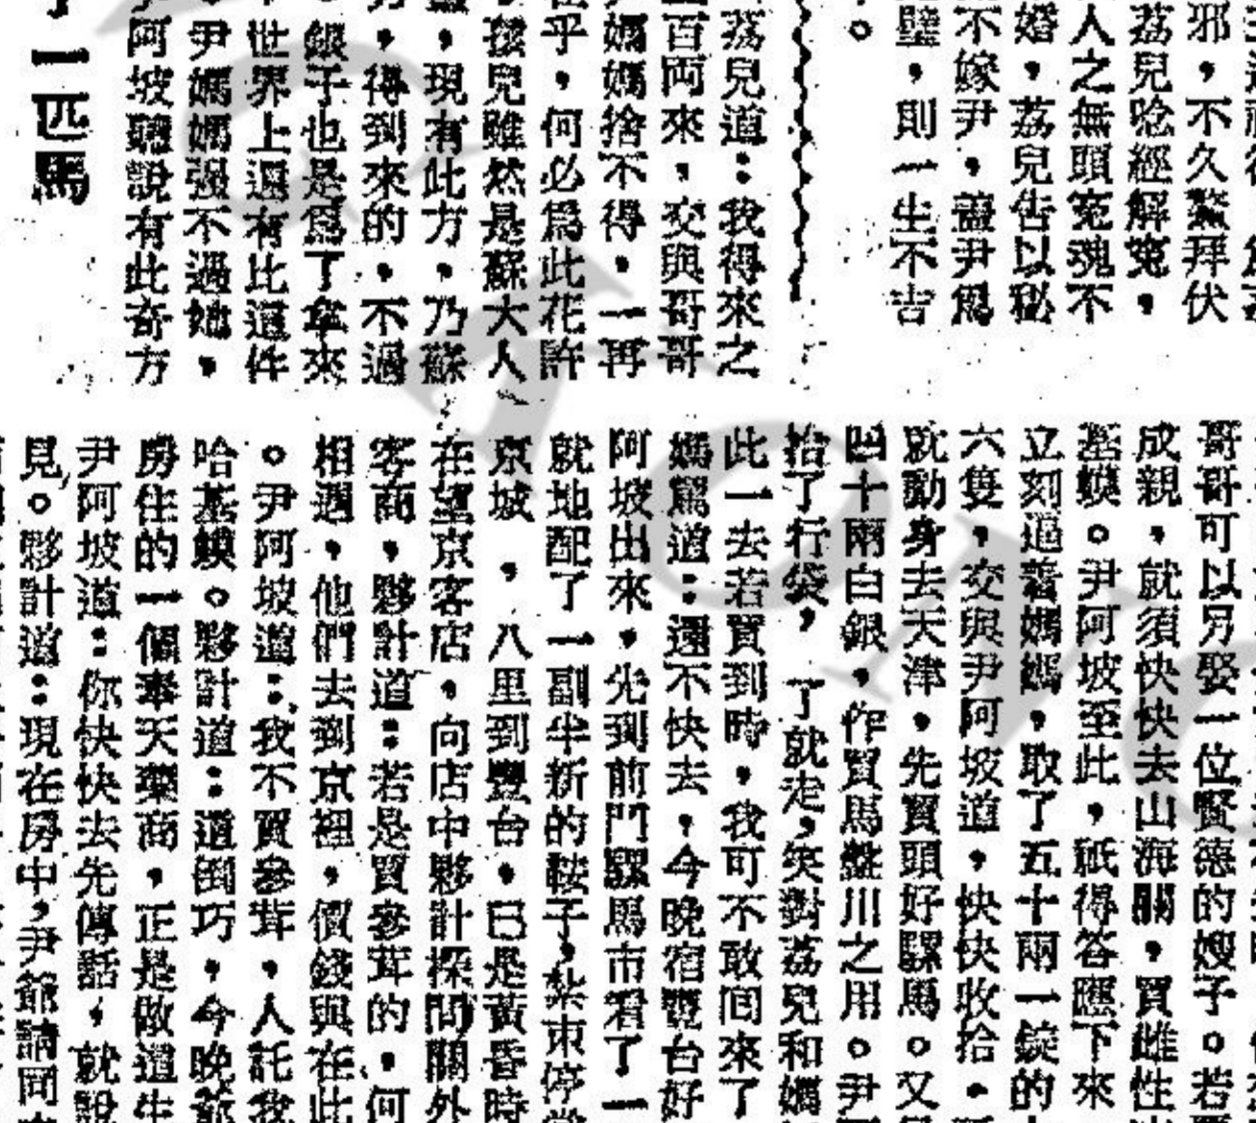 邪，不久驚拜伏
荔兒唸經解冤，
人之無頭冤魂不
婚，荔兒告以秘
不嫁尹，蓋尹爲
璧，則一生不吉
。
荔兒道：我得來之
百両來，交與哥哥
媽媽捨不得，一再
乎，何必爲此花許
兒雖然是蘇大人
，現有此方，乃蘇
，得到來的，不過
銀子也是爲了拿來
世界上還有比這件
尹媽媽强不過她，
阿坡聽說有此奇方
一匹馬
哥哥可以另娶一位賢德的嫂子。若
成親，就須快快去山海關，買雌性
基蟆。尹阿坡至此，祇得答應下來
立刻逼著媽媽，取了五十兩一錠的
六隻，交與尹阿坡道，快快收拾，
就動身去天津，先買頭好騾馬。又
四十兩白銀，作買馬盤川之用。尹
拾了行袋，了就走，笑對荔兒和媽
此一去若買到時，我可不敢回來了
媽罵道：還不快去，今晚宿豐台好
阿坡出來，先到前門騾馬市看了一
就地配了一副半新的鞍子，紮束停當
京城，八里到豐台，已是黃昏時
在望京客店，向店中夥計探問關外
客商，夥計道：若是買參茸的，何
相遇，他們去到京裡，價錢與在此
。尹阿坡道：我不買參茸，人託我
哈基蟆。夥計道：這倒巧，今晚
房住的一個奉天藥商，正是做這生
尹阿坡道：你快快去先傳話，就說
見。夥計道：現在房中，尹爺請同